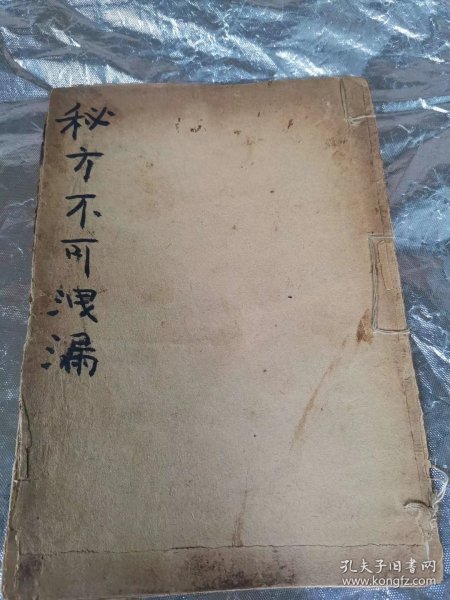 秘方不可洩漏
孔夫子旧书网
www.kongfz.com